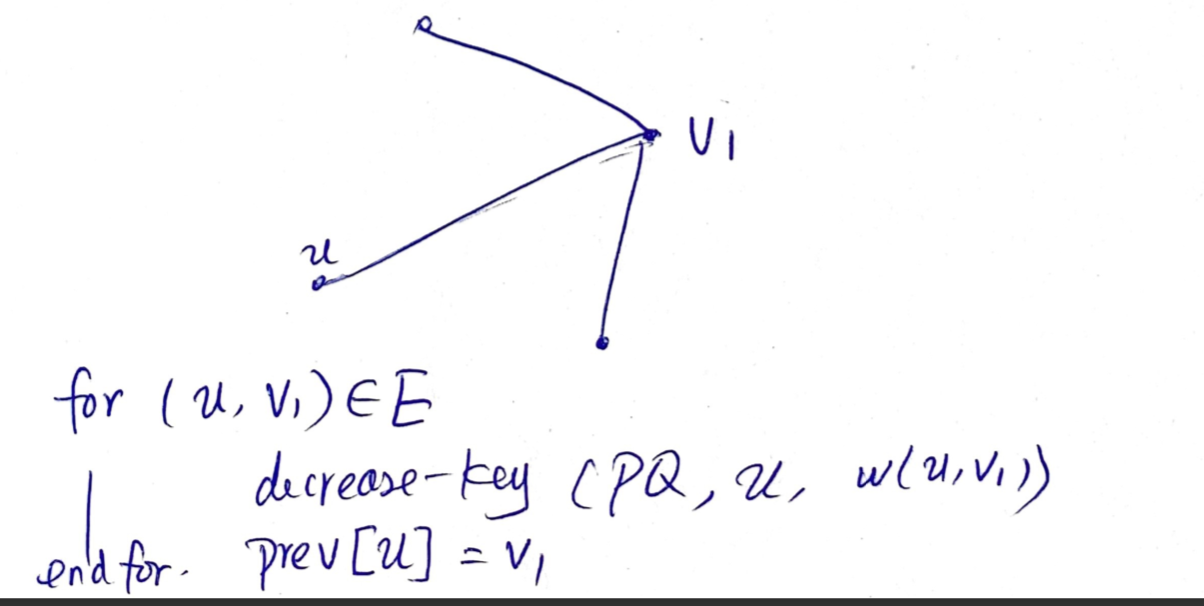 V1
u
for (u, V1) ∈ E
decrease-key (PQ, u, w(u, V1))
end for. prev[u] = V1